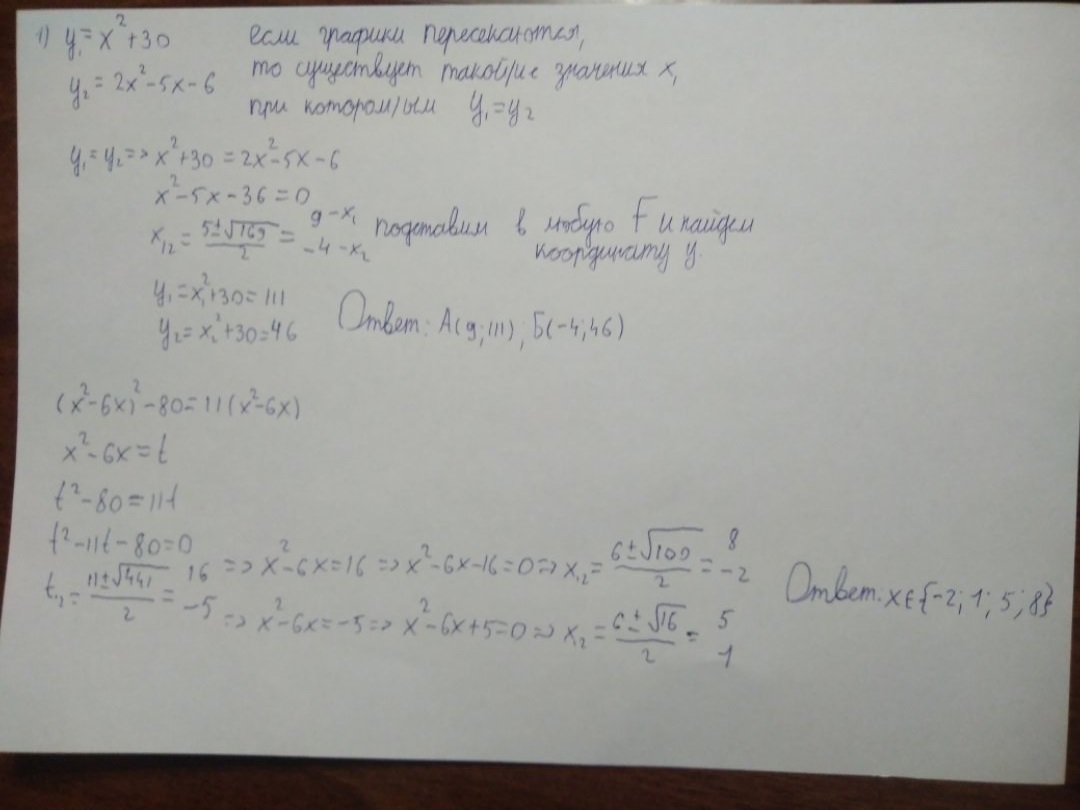 1) y₁ = x² + 30 если графики пересекаются,
y₂ = 2x² - 5x - 6 то существует такой/ие значения x,
при котором/ым y₁ = y₂
y₁ = y₂ => x² + 30 = 2x² - 5x - 6
x² - 5x - 36 = 0
x₁₂ = (5 ± √169)/2 = 9 - x₁ -4 - x₂ подставим в любую F и найдем
координату y.
y₁ = x₁² + 30 = 111
y₂ = x₂² + 30 = 46 Ответ: А(9; 111); Б(-4; 46)
(x² - 6x)² - 80 = 11(x² - 6x)
x² - 6x = t
t² - 80 = 11t
t² - 11t - 80 = 0
t₁,₂ = (11 ± √441)/2 = 16 => x² - 6x = 16 => x² - 6x - 16 = 0 => x₁₂ = (6 ± √100)/2 = 8 -2
-5 => x² - 6x = -5 => x² - 6x + 5 = 0 => x₁₂ = (6 ± √16)/2 = 5 1
Ответ: x ∈ {-2; 1; 5; 8}